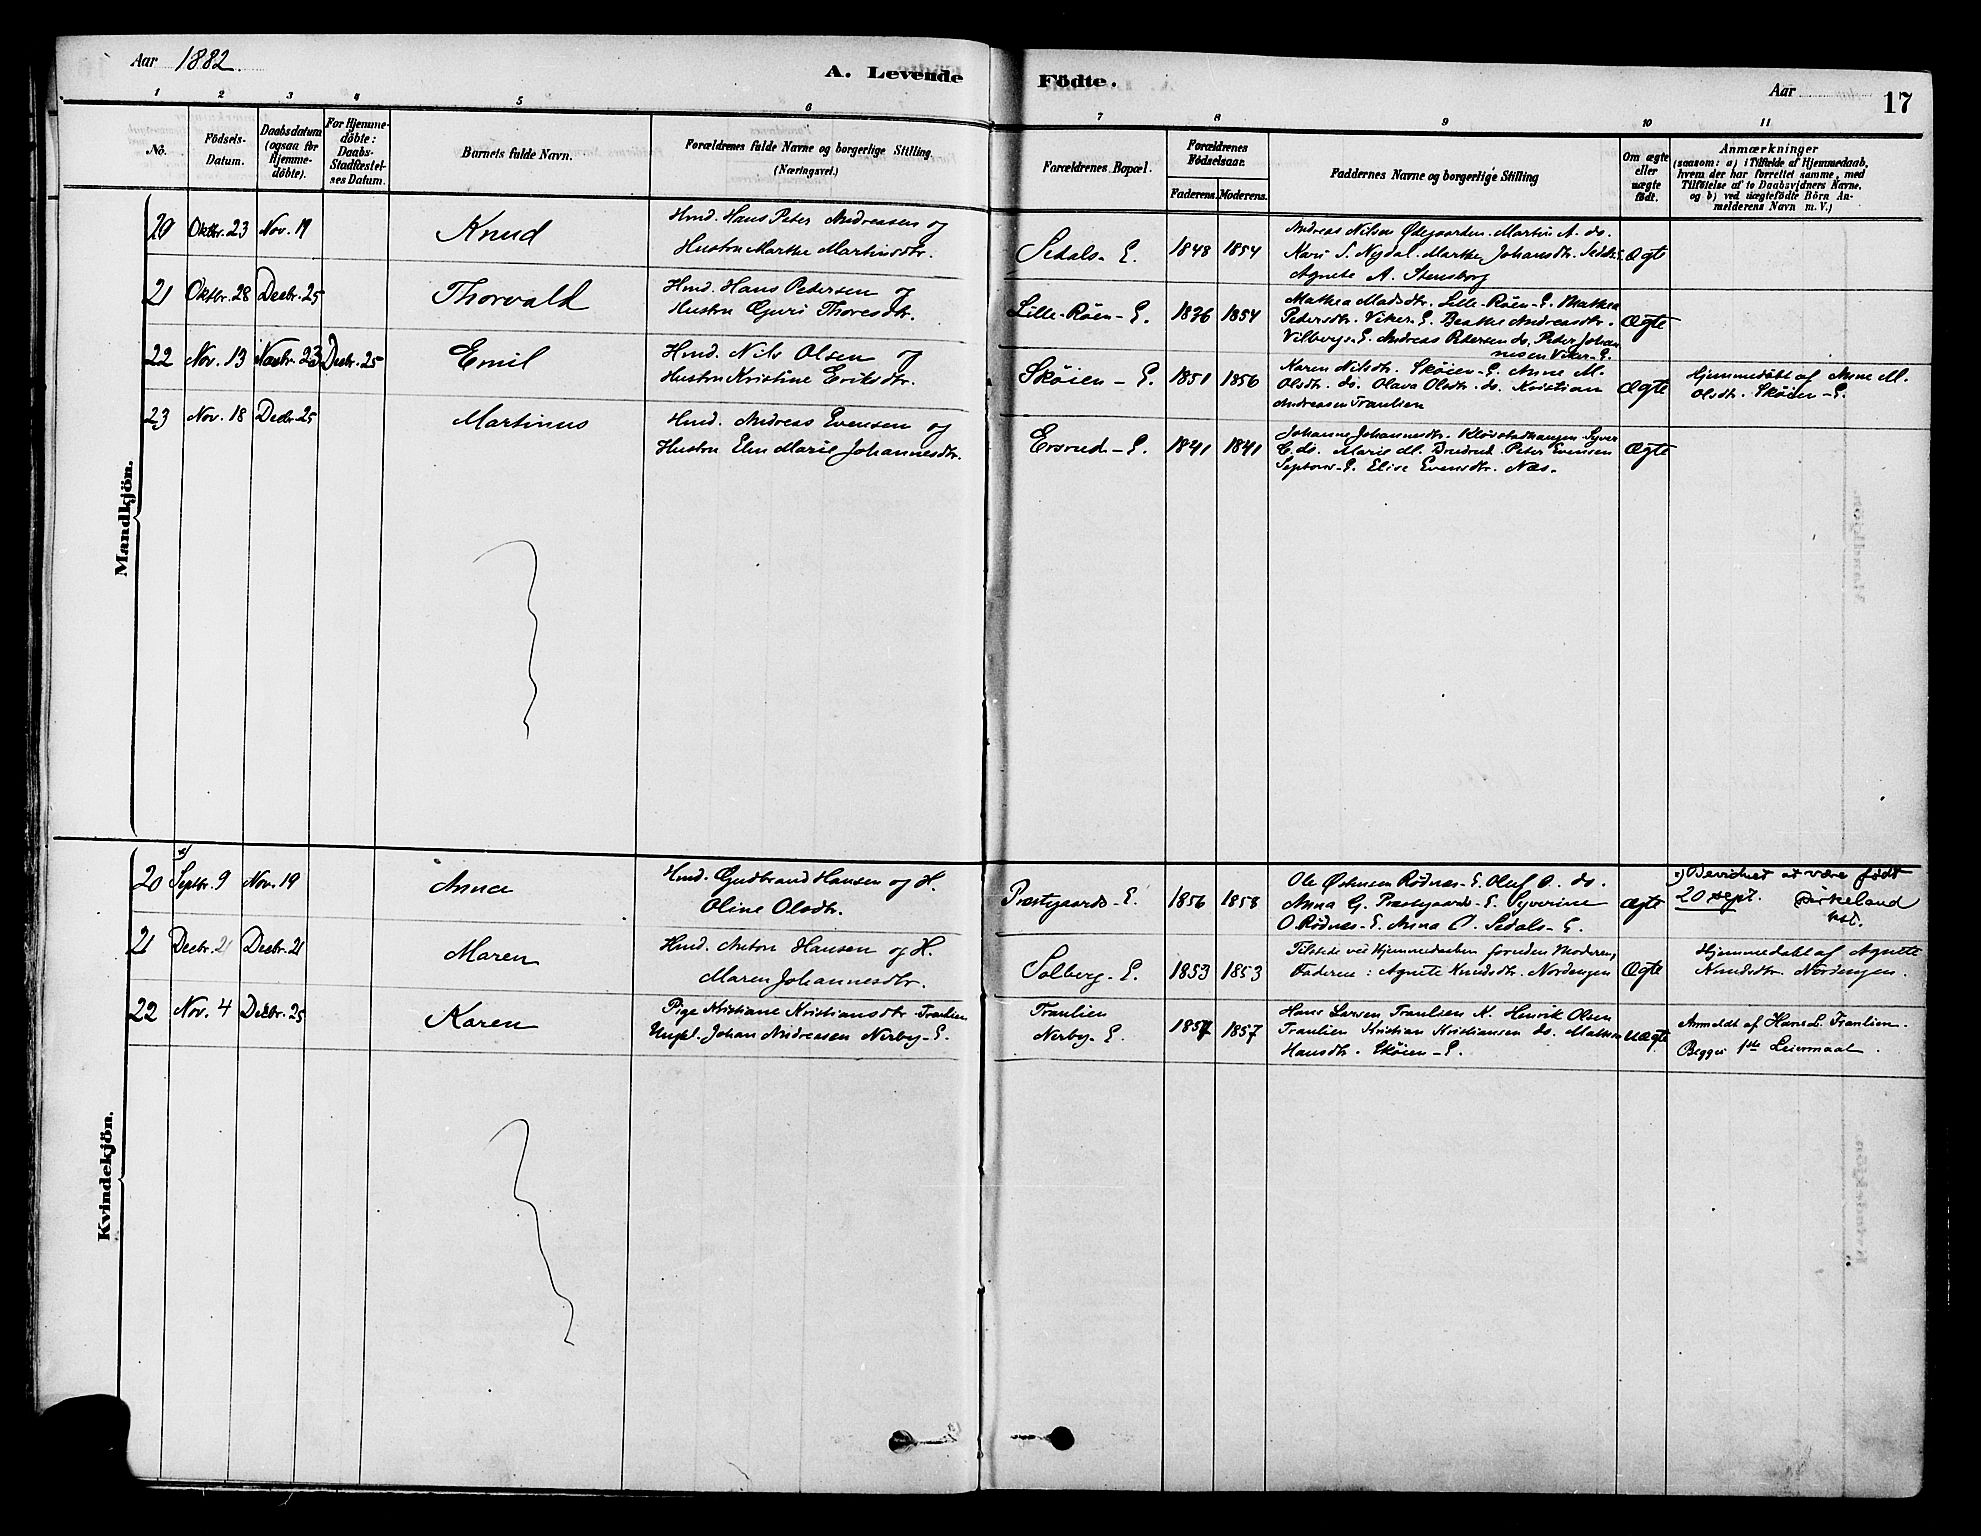 Aar 1882.
A. Levende
Födte.
Aar
17
1 2 3 4 5 6
7 8 9 10 11
No.
Födsels-
Datum.
Daabsdatum
(ogsaa for
Hjemme-
döbte).
For Hjemme-
döbte:
Daabs-
Stadfæstel-
ses Datum.
Barnets fulde Navn.
Forældrenes fulde Navne og borgerlige Stilling
(Næringsvei.)
Forældrenes Bopæl.
Forældrenes
Födselsaar.
Faderens. Moderens.
Faddernes Navne og borgerlige Stilling
Om ægte
eller
uægte
født.
Anmærkninger
(saasom: a) i Tilfælde af Hjemmedaab,
hvem der har forrettet samme, med
Tilföielse af to Daabsvidners Navne,
og b) ved uægtefödte Börn An-
melderens Navn m. V.)
Mandkjön.
20 Oktbr. 23 Nov. 19 Knud
Hmd. Hans Peter Andreasen og
Hustru Marthe Martinsdtr.
Sedals-E. 1848 1854
Andreas Nilsen Ødegaarden. Martin A. do.
Kari S. Nydal. Marthe Johansdtr. Sedals
Agnete A. Stensborg
Ægte
21 Oktbr. 28 Decbr. 25 Thorvald
Hmd. Hans Petersen og
Hustru Guri Thoresdtr.
Lille-Röen-E. 1836 1854
Mathea Madsdtr. Lille-Röen-E. Mathea
Petersdtr. Viker-E. Beathe Andreasdtr.
Vilbergs-E. Andreas Petersen do. Peter Johan
nesen Viker-E.
Ægte
22 Nov. 13 Novbr. 23 Decbr. 25 Emil
Hmd. Nils Olsen og
Hustru Kristine Eriksdtr.
Sköien-E. 1851 1856
Karen Nilsdtr. Sköien-E. Anne M.
Olsdtr. do. Olava Olsdtr. do. Kristian
Andreasen Franlien
Ægte
Hjemmedöbt af Anne M.
Olsdtr. Sköien-E.
23 Nov. 18 Decbr. 25 Martinus
Hmd. Andreas Evensen og
Hustru Elen Marie Johannesdtr.
Ersrud-E. 1841 1841
Johanne Johannesdtr. Klövstadhaugen Syver
E. do. Marie M. Bredrud. Peter Evensen
E. Elise Evensdtr. Næs.
Ægte
Kvindekjön.
20 Septbr. 9 Nov. 19 Anna
Hmd. Gudbrand Hansen og H.
Oline Olsdtr.
Præstgaards-E. 1856 1858
Ole Østensen Rödnæs-E. Oluf O. do.
Anna G. Præstgaards-E. Syverine
O. Rödnæs-E. Anna O. Sedals-E.
Ægte
x) Bevidnet at være født
20 sept. Birkeland
21 Decbr. 21 Decbr. 21 Maren
Hmd. Anton Hansen og H.
Maren Johannesdtr.
Solberg-E. 1853 1853
Tilstede ved Hjemmedaaben foruden Moderen,
Faderne: Agnete Knudsdtr. Nordengen
Ægte
Hjemmedøbt af Agnete
Knudsdtr. Nordengen.
22 Nov. 4 Decbr. 25 Karen
Pige Kristiane Kristiansdtr. Franlien
Ungk. Johan Andreasen Nerby-E.
Franlien
Nerby-E.
1857 1857
Hans Larsen Franlien N. Henrik Olsen
Franlien Kristian Kristiansen do. Mathea
Hansdtr. Sköien-E.
Uægte
Anmeldt af Hans L. Franlien.
Begges 1ste Leiermaal.